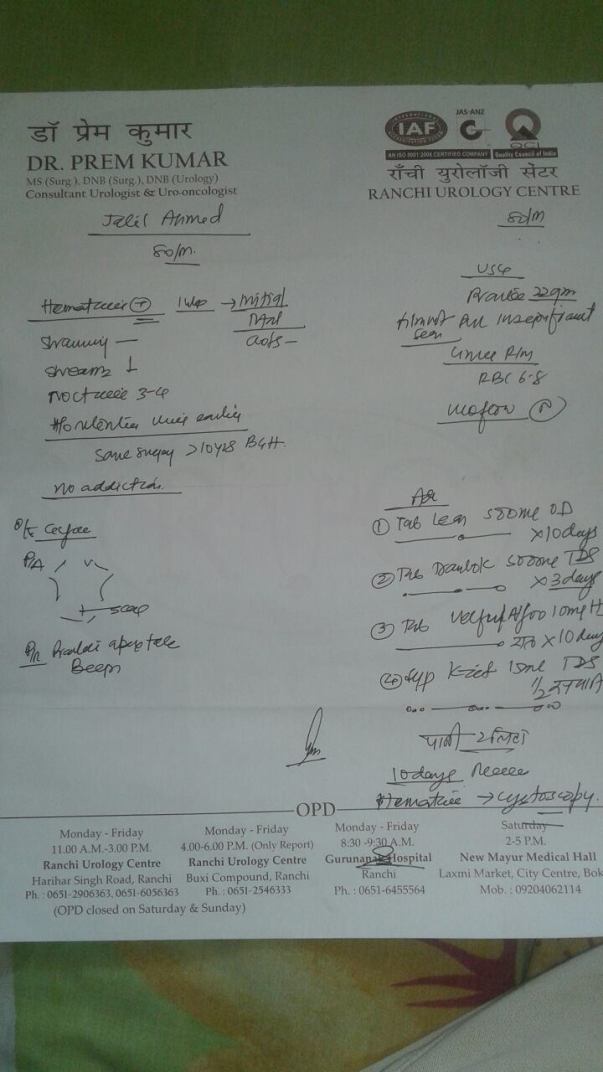 डॉ प्रेम कुमार
DR. PREM KUMAR
MS (Surg.), DNB (Surg.), DNB (Urology)
Consultant Urologist & Uro-oncologist
IAF
JAS-ANZ
QCI
AN ISO 9001:2008 CERTIFIED COMPANY
Quality Council of India
राँची युरोलॉजी सेंटर
RANCHI UROLOGY CENTRE
Jalil Ahmed
80/M.
80/M
Hematuria + → Initial
Straining —
Stream ↓
Nocturia 3-4
earlier
Same surgery >10yrs BGH.
No addiction.
O/E
P/A
scar
P/R
USG
Prostate 22gm
insignificant
Urine R/M
RBC 6-8
Uroflow N
Adv
① Tab 500mg OD
x10 days
② Tab 500mg TDS
x 3 days
③ Tab 10mg H
रात x 10 days
④ Syp 15ml TDS
1/2
पानी 2 लिटर
10 days
Hematuria → cystoscopy.
OPD
Monday - Friday
11.00 A.M.-3.00 P.M.
Ranchi Urology Centre
Harihar Singh Road, Ranchi
Ph. : 0651-2906363, 0651-6056363
Monday - Friday
4.00-6.00 P.M. (Only Report)
Ranchi Urology Centre
Buxi Compound, Ranchi
Ph. : 0651-2546333
Monday - Friday
8:30 -9:30 A.M.
Gurunanak Hospital
Ranchi
Ph. : 0651-6455564
Saturday
2-5 P.M.
New Mayur Medical Hall
Laxmi Market, City Centre, Bok
Mob. : 09204062114
(OPD closed on Saturday & Sunday)